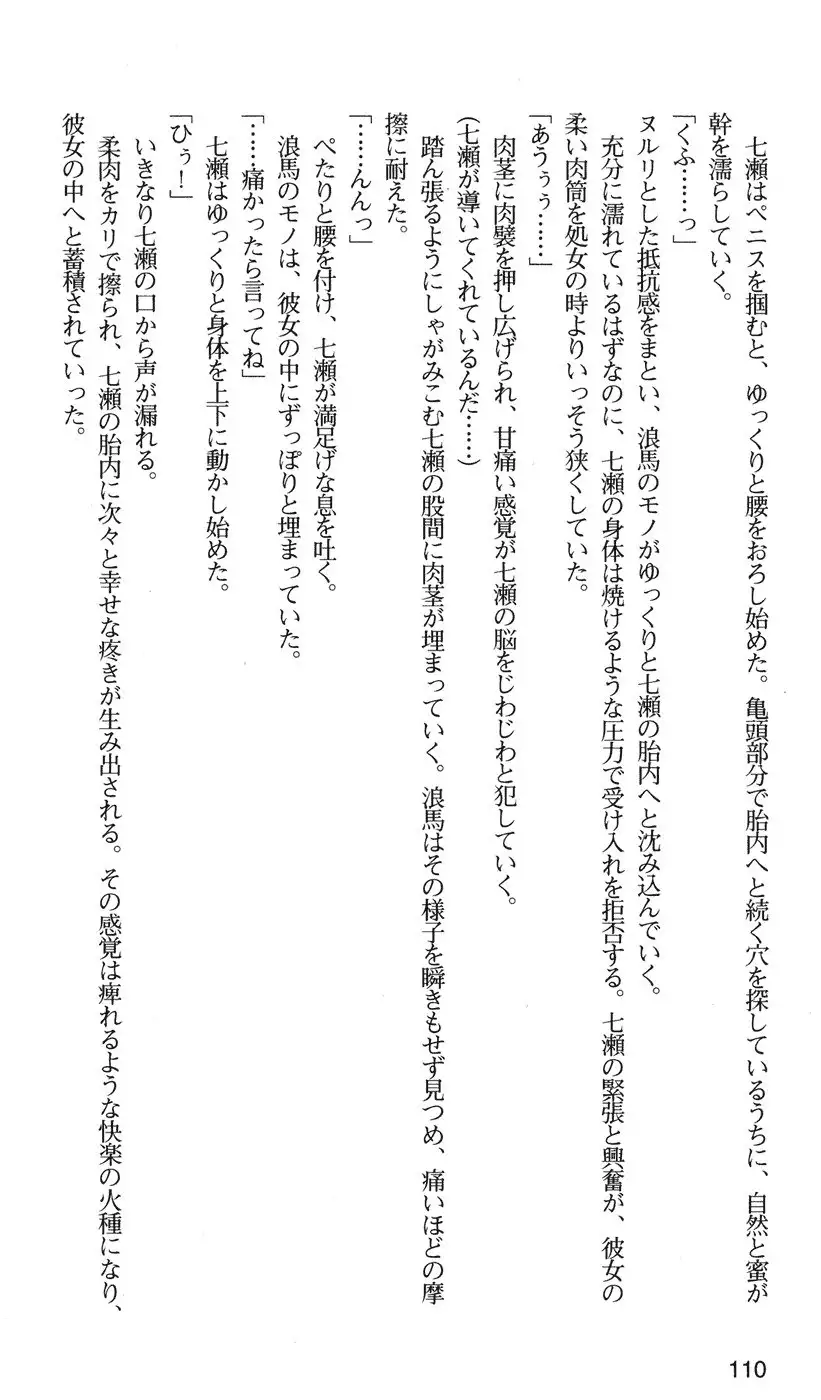 七瀬はペニスを掴むと、ゆっくりと腰をおろし始めた。亀頭部分で胎内へと続く穴を探しているうちに、自然と蜜が
幹を濡らしていく。
「くふ……っ」
ヌルリとした抵抗感をまとい、浪馬のモノがゆっくりと七瀬の胎内へと沈み込んでいく。
　充分に濡れているはずなのに、七瀬の身体は焼けるような圧力で受け入れを拒否する。七瀬の緊張と興奮が、彼女の
柔い肉筒を処女の時よりいっそう狭くしていた。
「あうぅぅ……」
　肉茎に肉襞を押し広げられ、甘痛い感覚が七瀬の脳をじわじわと犯していく。
(七瀬が導いてくれているんだ……)
　踏ん張るようにしゃがみこむ七瀬の股間に肉茎が埋まっていく。浪馬はその様子を瞬きもせず見つめ、痛いほどの摩
擦に耐えた。
「……んんっ」
　ぺたりと腰を付け、七瀬が満足げな息を吐く。
　浪馬のモノは、彼女の中にずっぽりと埋まっていた。
「……痛かったら言ってね」
　七瀬はゆっくりと身体を上下に動かし始めた。
「ひぅ！」
　いきなり七瀬の口から声が漏れる。
　柔肉をカリで擦られ、七瀬の胎内に次々と幸せな疼きが生み出される。その感覚は痺れるような快楽の火種になり、
彼女の中へと蓄積されていった。
110